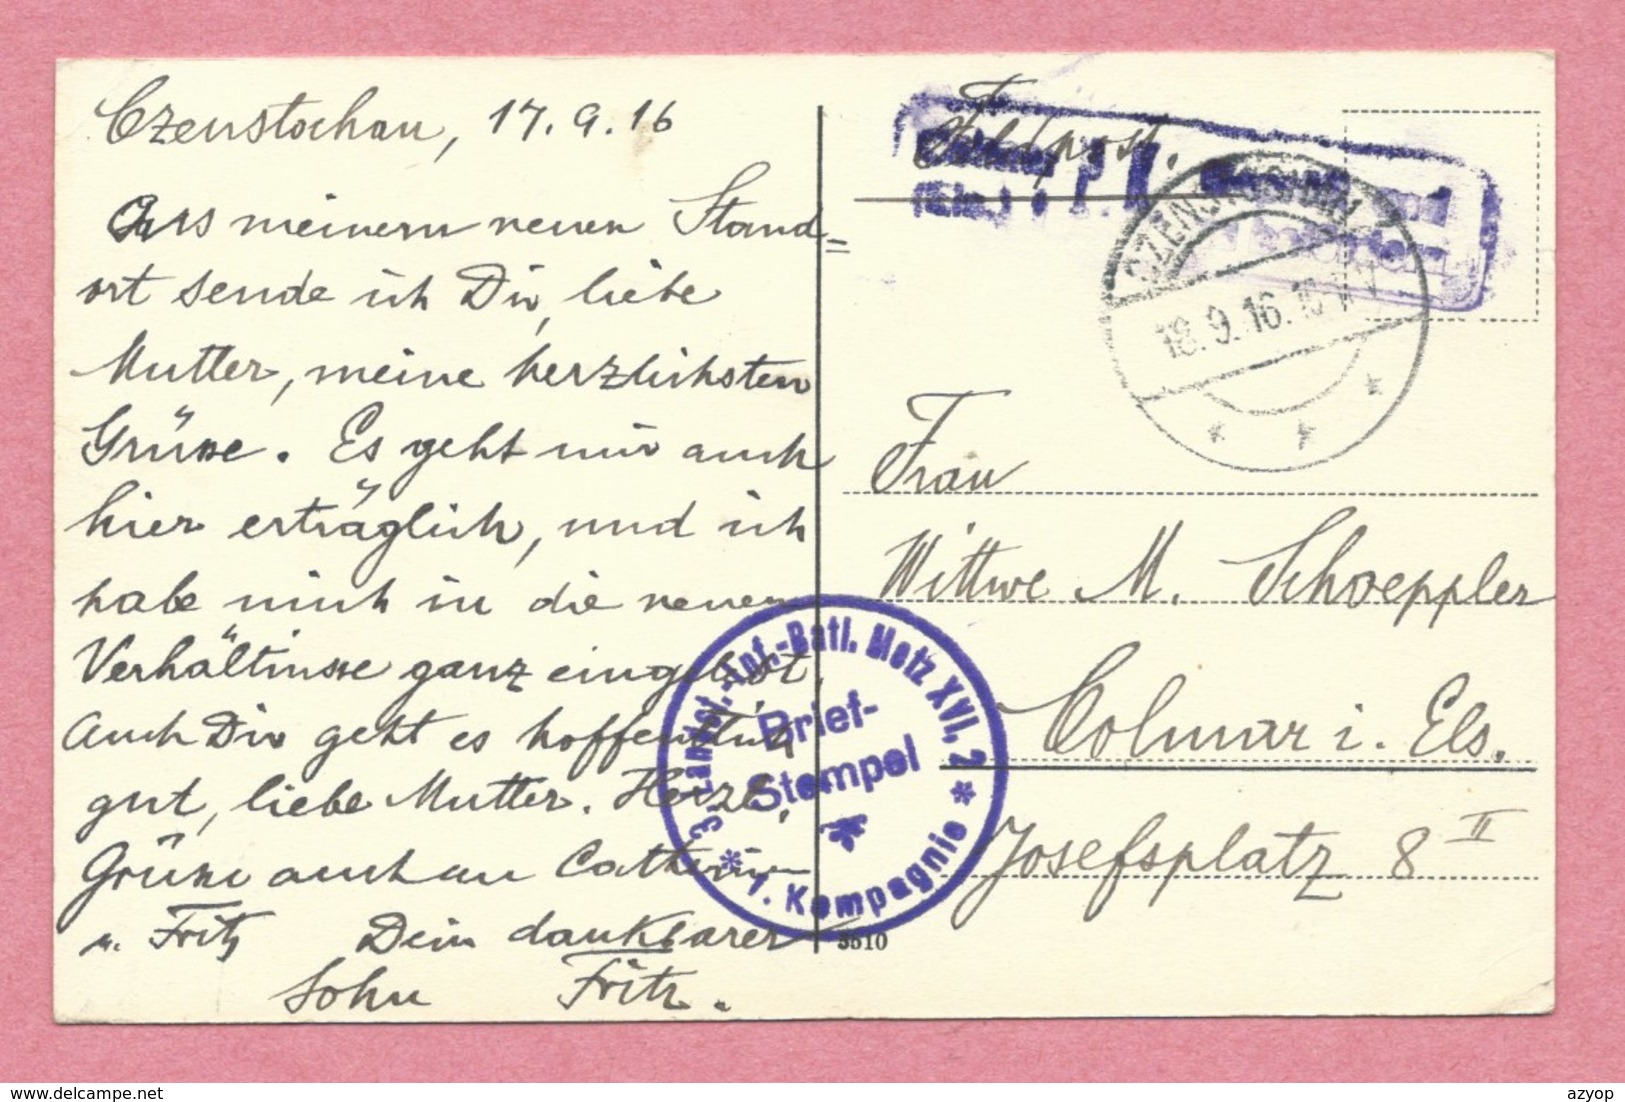 Czenstochau, 17.9.16
Aus meinem neuen Stand=
ort sende ich Dir, liebe
Mutter, meine herzlichsten
Grüsse. Es geht mir auch
hier erträglich, und ich
habe mich in die neuen
Verhältnisse ganz eingelebt.
Auch Dir geht es hoffentlich
gut, liebe Mutter. Herzl.
Grüsse auch an Catherin
u. Fritz Dein dankbarer
Sohn Fritz.
Feldpost.
P. K.
CZENSTOCHAU
18.9.16.10
Frau
Wittwe M. Schoeppler
Colmar i. Els.
Josefsplatz 8 II
3. Landst.-Inf.-Batl. Metz XVI, 2
Brief-
Stempel
* 1. Kompagnie *
3510
delcampe.net
azyop